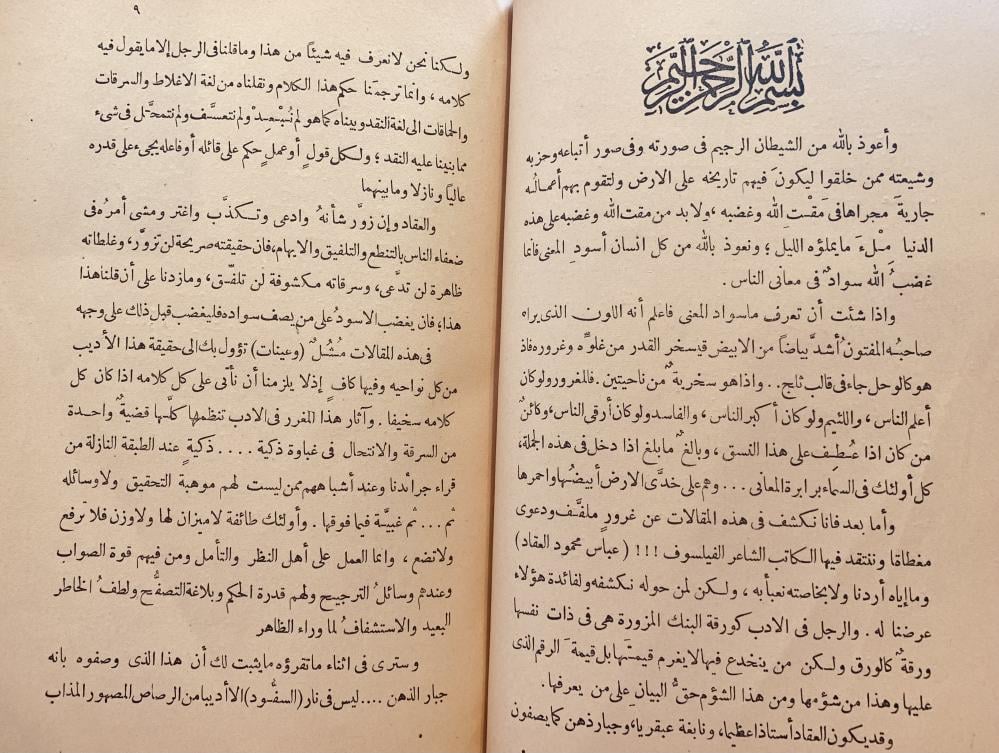 بسم الله الرحمن الرحيم
وأعوذ بالله من الشيطان الرجيم فى صورته وفى صور أتباعه وحزبه
وشيعته ممن خلقوا ليكونَ فيهم تاريخه على الارض ولتقوم بهم أعمالُه
جاريةً مجراها فى مَقْت الله وغضبه ، ولابد من مقت الله وغضبه على هذه
الدنيا مِلْءَ مايملؤه الليل ؛ ونعوذ بالله من كل انسان أسودِ المعنى فانما
غضبُ الله سوادٌ فى معانى الناس .
واذا شئت أن تعرف ماسواد المعنى فاعلم أنه اللون الذى يراه
صاحبُه المفتون أشدَّ بياضاً من الابيض فيسخر القدر من غلوِّه وغروره فاذا
هو كالوحل جاء فى قالب ثلج . . واذا هو سخريةٌ من ناحيتين . فالمغرور ولو كان
أعلم الناس ، واللئيم ولو كان أكبر الناس ، والفاسد ولو كان أرقى الناس ، وكائنٌ
من كان اذا عُطِف على هذا النسق ، وبالغٌ مابلغ اذا دخل فى هذه الجملة ،
كل أولئك فى السماء برابرة المعانى . . . وهم على خدَّى الارض أبيضُها واحمرها
وأما بعد فانا نكشف فى هذه المقالات عن غرورٍ ملفَّف ودعوى
مغطاة وننتقد فيها الكاتب الشاعر الفيلسوف !!! ( عباس محمود العقاد )
وما إياه أردنا ولا بخاصته نعبأ به ، ولكن لمن حوله نكشفه ولفائدة هؤلاء
عرضنا له . والرجل فى الادب كورقة البنك المزورة هى فى ذات نفسها
ورقةٌ كالورق ولكن من ينخدع فيها لايغرم قيمتها بل قيمةَ الرقم الذى
عليها وهذا من شؤمها ومن هذا الشؤم حقُّ البيان على من يعرفها .
وقد يكون العقاد أستاذا عظيما، ونابغة عبقريا، وجبار ذهن كما يصفون
٩
ولكنا نحن لانعرف فيه شيئاً من هذا وماقلنا فى الرجل إلا مايقول فيه
كلامه ، وانما ترجمنا حكم هذا الكلام ونقلناه من لغة الاغلاط والسرقات
والحماقات الى لغة النقد وبيناه كما هو لم نُبْعِدْ ولم نتعسَّف ولم نتمحَّل فى شىء
مما بنينا عليه النقد ؛ ولكل قولٍ أو عملٍ حكم على قائله أو فاعله يجىء على قدره
عاليًا ونازلا ومابينهما
والعقاد وإن زوَّر شأنهُ وادعى وتكذَّب واغتر ومشى أمرُه فى
ضعفاء الناس بالتنطع والتلفيق والايهام، فان حقيقته صريحة لن تزوَّر، وغلطاته
ظاهرة لن تدَّعى ، وسرقاته مكشوفة لن تلفَّق، ومازدنا على أن قلنا هذا
هذا؛ فان يغضب الاسودُ على من يصف سواده فليغضب قبل ذلك على وجهه
فى هذه المقالات مُثُلٌ (وعينات) تؤول بك الى حقيقة هذا الأديب
من كل نواحيه وفيها كافٍ إذ لا يلزمنا أن نأتى على كل كلامه اذا كان كل
كلامه سخيفا . وآثار هذا المغرر فى الادب تنظمها كلَّها قضيةٌ واحدة
من السرقة والانتحال فى غباوة ذكية . . . . ذكيةٍ عند الطبقة النازلة من
قراء جرائدنا وعند أشباههم ممن ليست لهم موهبة التحقيق ولا وسائله
ثم . . . ثم غبيَّة فيما فوقها . وأولئك طائفة لاميزان لها ولا وزن فلا ترفع
ولا تضع ، وانما العمل على أهل النظر والتأمل ومن فيهم قوة الصواب
وعندهم وسائلُ الترجيح ولهم قدرة الحكم وبلاغة التصفُّح ولطفُ الخاطر
البعيد والاستشفافُ لما وراء الظاهر
وسترى فى اثناء ماتقرؤه مايثبت لك أن هذا الذى وصفوه بانه
جبار الذهن . . . . ليس فى نار (السفُّود) الا أديبا من الرصاص المصهور المذاب